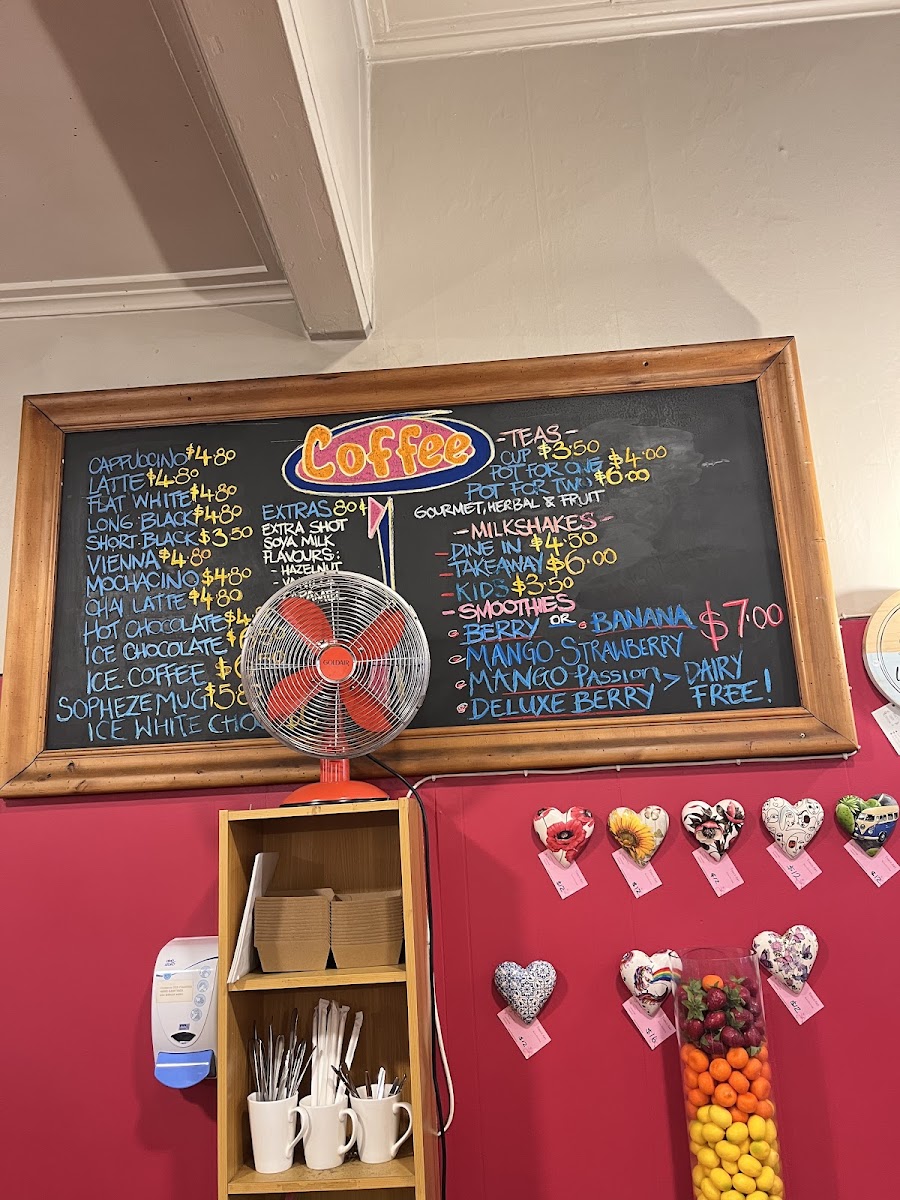 Coffee
CAPPUCCINO $4.80
LATTE $4.80
FLAT WHITE $4.80
LONG BLACK $4.80
SHORT BLACK $3.50
VIENNA $4.80
MOCHACINO $4.80
CHAI LATTE $4.80
HOT CHOCOLATE $4
ICE CHOCOLATE $6
ICE COFFEE $6
SOPHEZE MUG $5.80
ICE WHITE CHO
EXTRAS 80¢
EXTRA SHOT
SOYA MILK
FLAVOURS:
- HAZELNUT
- TEAS -
CUP $3.50
POT FOR ONE $4.00
POT FOR TWO $6.00
GOURMET, HERBAL & FRUIT
- MILKSHAKES -
- DINE IN $4.50
- TAKEAWAY $6.00
- KIDS $3.50
- SMOOTHIES
• BERRY OR • BANANA $7.00
• MANGO-STRAWBERRY
• MANGO PASSION > DAIRY
• DELUXE BERRY FREE!
GOLDAIR
$12
$12
$12
$12
$12
$12
$16
$12